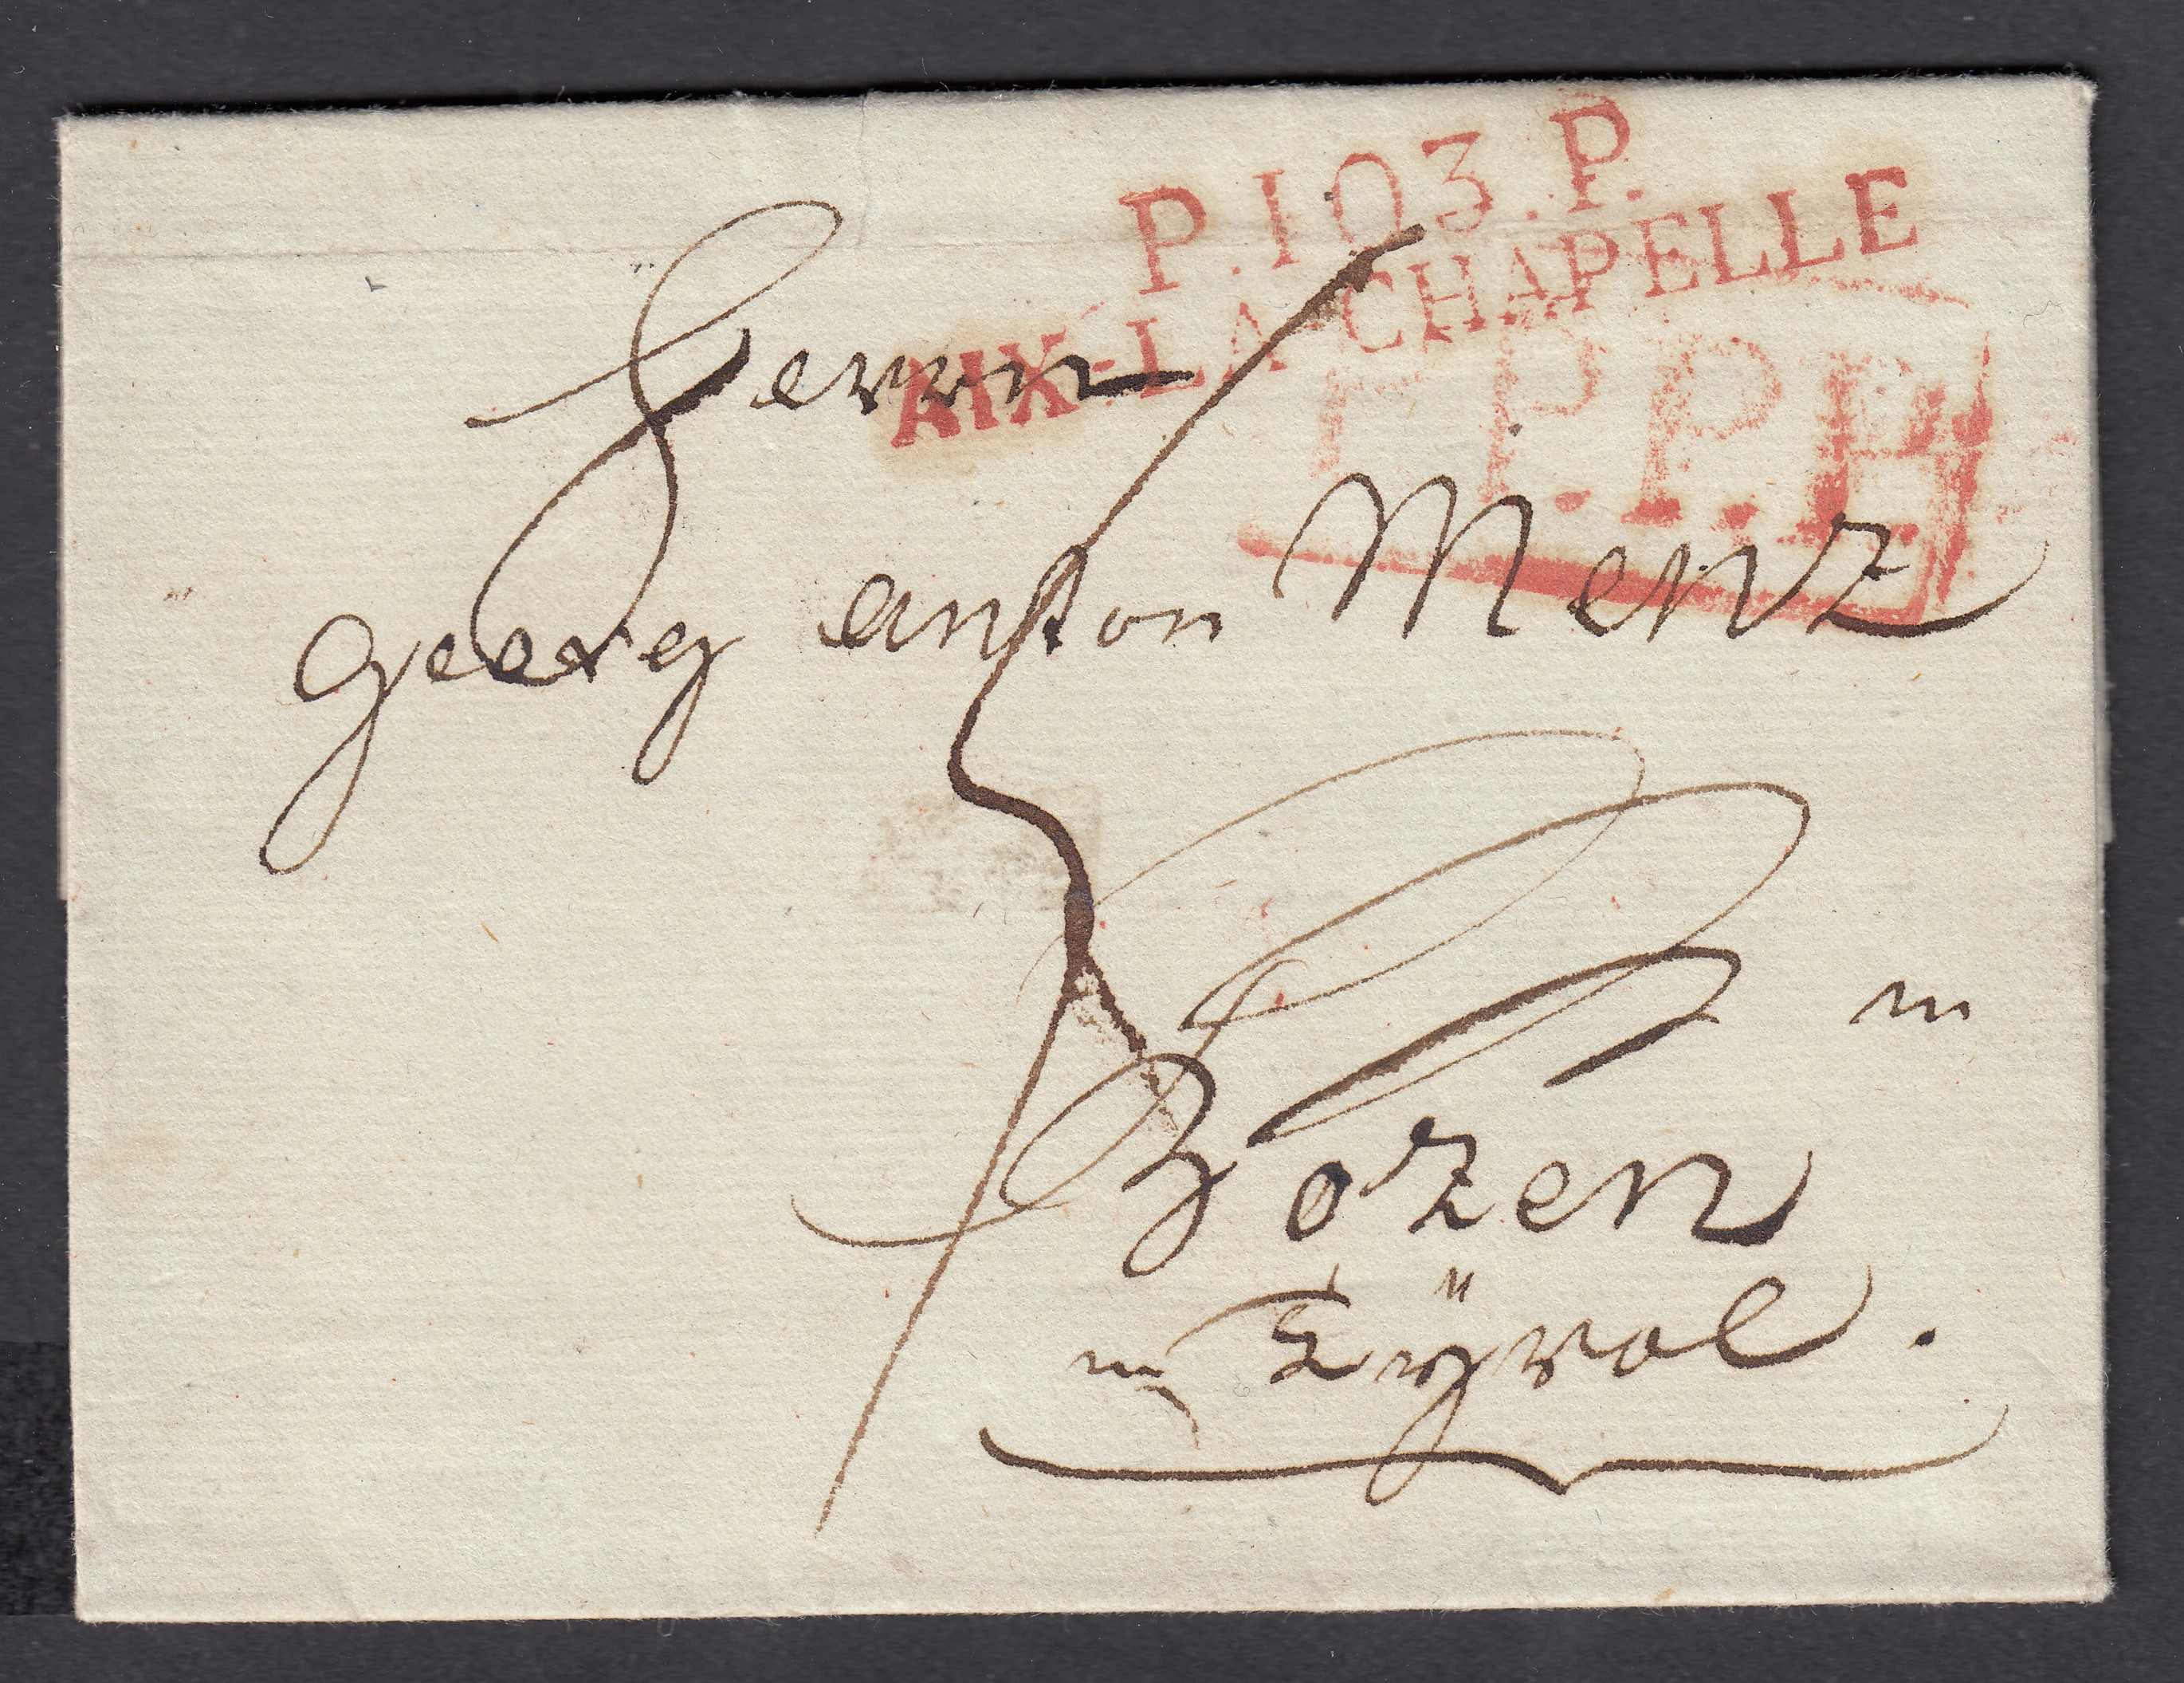 P.103.P.
AIX-LA-CHAPELLE
P.P.P.P.
Herrn
Georg anton Menz
in
Bozen
in Tÿrol.